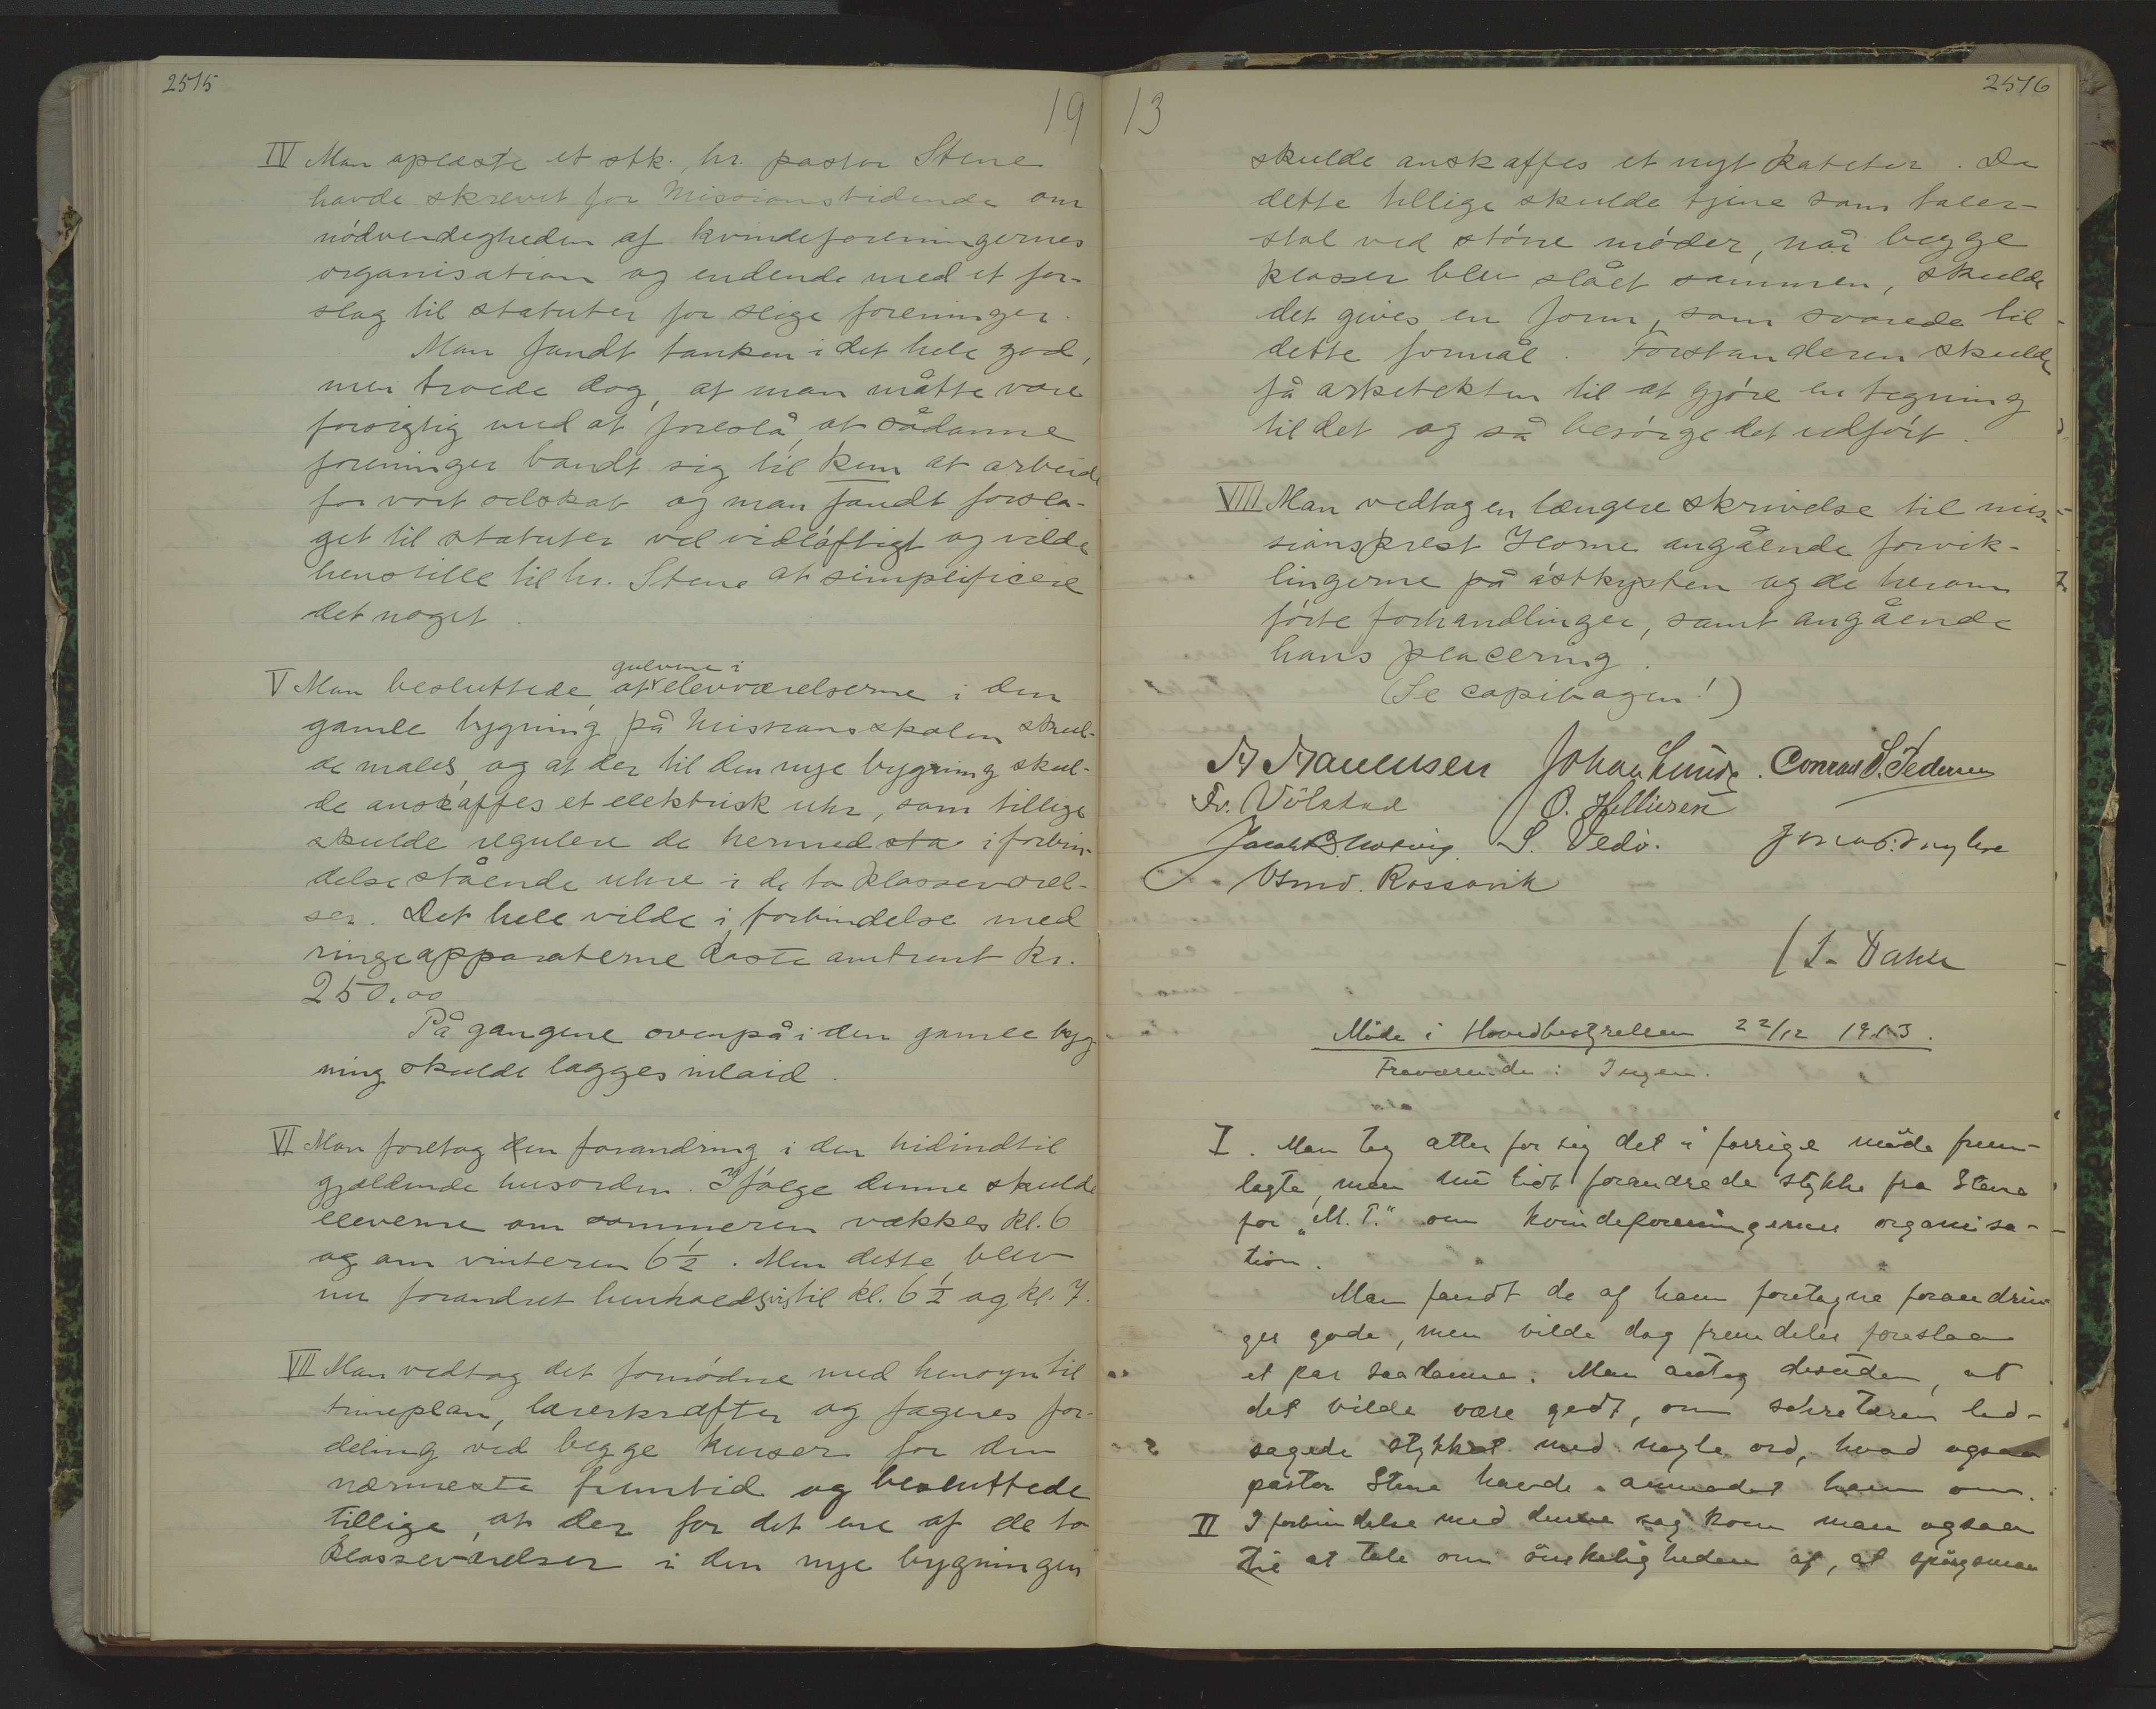 2515
19
IV Man oplæste et stk. hr. pastor Stene
havde skrevet for Missionstidende om
nödvendigheden af kvindeforeningernes
organisation og endende med et for-
slag til statuter for slige foreninger.
Man fandt tanken i det hele god,
men troede dog, at man måtte være
forsigtig med at foreslå, at sådanne
foreninger bandt sig til kun at arbeide
for vort selskab og man fandt forsla-
get til statuter vel vidlöftigt og vilde
henstille til hr. Stene at simplificere
det noget.
gulvene i
V Man besluttede, at elevværelserne i den
gamle bygning på Missionsskolen skul-
de males, og at der til den nye bygning skul-
de anskaffes et elektrisk uhr, som tillige
skulde regulere de hermed sta i forbin-
delse stående uhre i de to klasseværel-
ser. Det hele vilde i forbindelse med
ringeapparaterne koste omtrent kr.
250.00
På gangene ovenpå i den gamle byg
ning skulde lægges inlaid.
VI Man foretog den forandring i den hidindtil
gjældende husorden. Ifölge denne skulde
eleverne om sommeren vækkes kl. 6
og om vinteren 6 1/2. Men dette blev
nu forandret henholdsvis til kl. 6 1/2 og kl. 7.
VII Man vedtog det fornödne med hensyn til
timeplan, lærerkræfter og fagenes for-
deling ved begge kurser for den
nærmeste fremtid og besluttede
tillige, at der for det ene af de to
klasseværelser i den nye bygningen
2516
13
skulde anskaffes et nyt kateter. Da
dette tillige skulde tjene som taler-
stol ved större möder, når begge
klasser blev slået sammen, skulde
det gives en form, som svarede til
dette formål. Forstanderen skulde
få arkitekten til at gjöre en tegning
til det og så besörge det udfört.
VIII Man vedtog en længere skrivelse til mis-
sionsprest Horne angående forvik-
lingerne på östkysten og de herom
förte forhandlinger, samt angående
hans placering.
(Se copibogen!)
Johan Lunde. Conrad S. Pedersen
Fr. Völstad O. Helliesen
S. Vedö.
Osmd. Rossavik
/ L. Dahle
Möde i Hovedbestyrelsen 22/12 1913.
Fraværende: Ingen.
I. Man tog atter for sig det i forrige möde frem-
lagte, men nu lidt forandrede stykke fra Stene
for "M. T." om kvindeforeningernes organisa-
tion.
Man fandt de af ham foretagne forandrin-
ger gode, men vilde dog fremdeles foreslaa
et par saadanne. Man antog desuden, at
det vilde være godt, om sekretæren led-
sagede stykket med nogle ord, hvad ogsaa
pastor Stene havde anmodet ham om.
II I forbindelse med denne sag kom man ogsaa
til at tale om önskeligheden af, at spörgsmaa